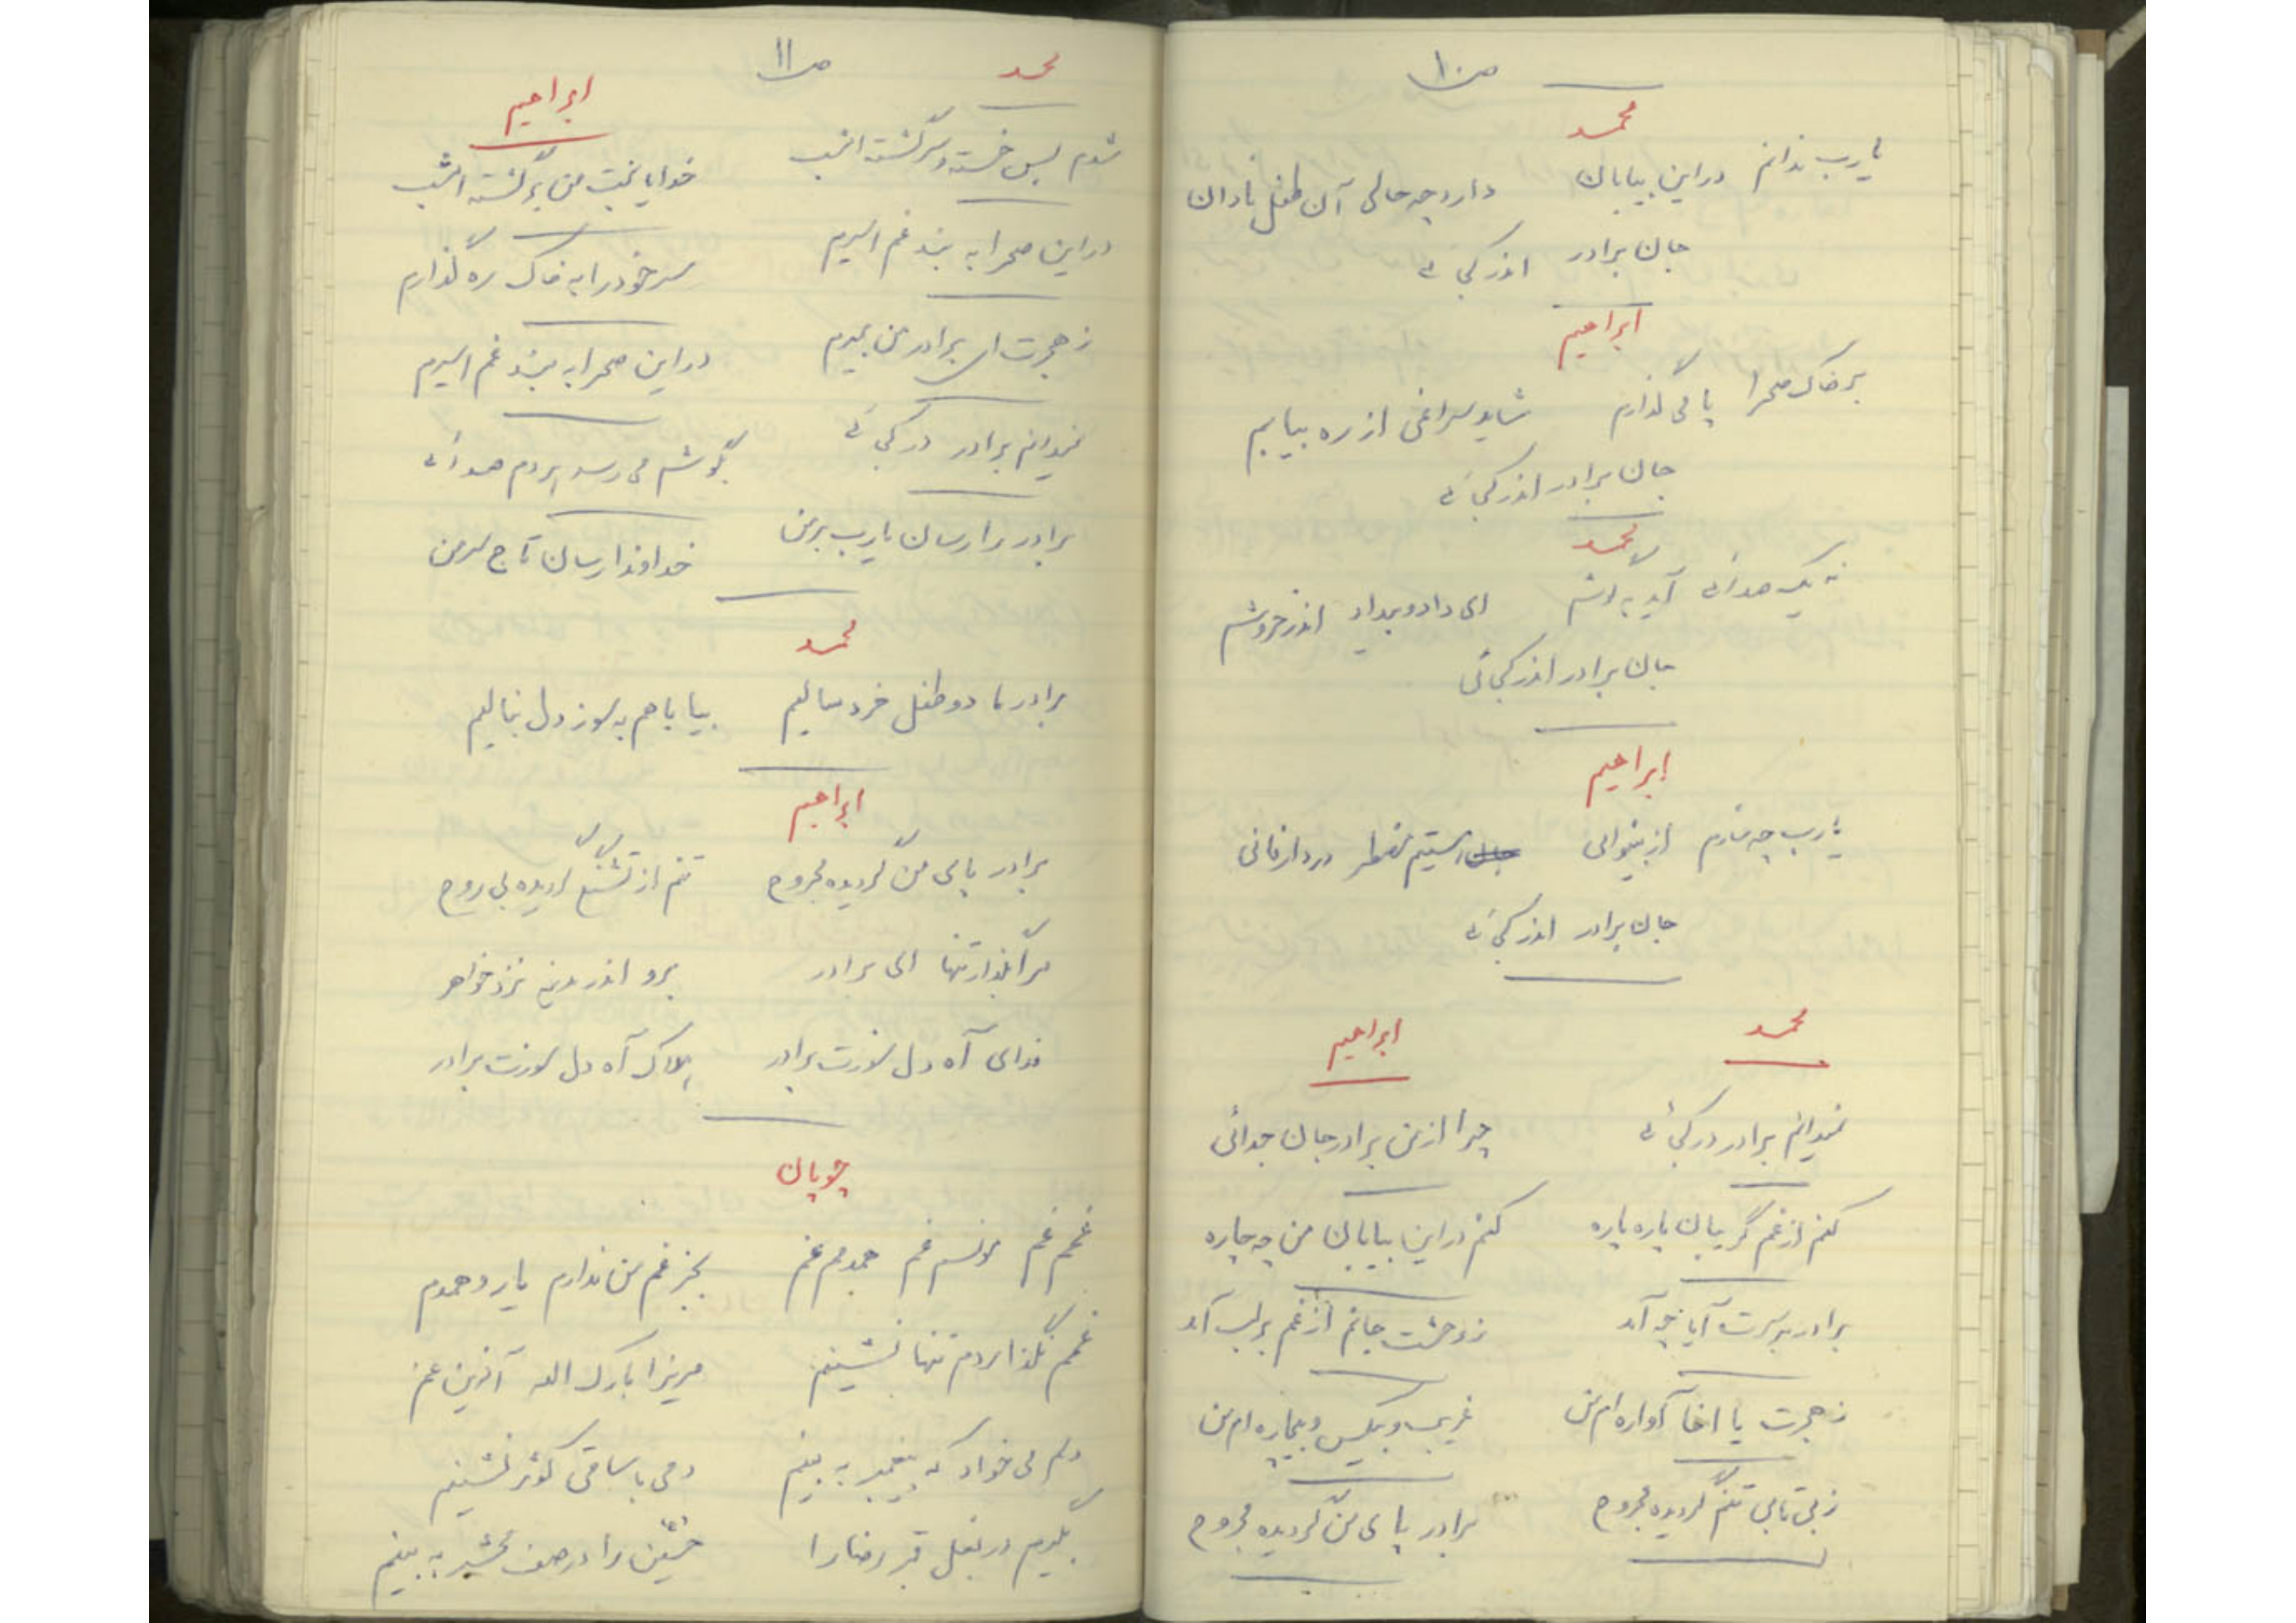 ص ۱۰
محمد
یا رب ندانم در این بیابان دارد چه حالی آن طفل نادان
جان برادر اندر کجائی
ابراهیم
بر خاک صحرا پا می گذارم شاید سراغی از ره بیابم
جان برادر اندر کجائی
محمد
نه یک صدائی آید به گوشم ای داد و بیداد اندر خروشم
جان برادر اندر کجائی
ابراهیم
یا رب چه سازم از بینوائی یتیم مضطر در دار فانی
جان برادر اندر کجائی
محمد ابراهیم
نمیدانم برادر در کجائی چرا از من برادر جان جدائی
کنم از غم گریبان پاره پاره کنم در این بیابان من چه چاره
برادر بر سرت آیا چه آمد ز وحشت جانم از غم بر لب آمد
ز هجرت یا اخا آواره ام من غریب و بیکس و بیچاره ام من
ز بی تابی تنم گردیده مجروح برادر پای من گردیده مجروح
ص ۱۱
محمد ابراهیم
شدم بس خسته و سرگشته امشب خدایا بخت من برگشته امشب
در این صحرا به بند غم اسیرم سر خود را به خاک ره گذارم
ز هجرت ای برادر من بمیرم در این صحرا به بند غم اسیرم
نمیدانم برادر در کجائی بگوشم می رسد هر دم صدائی
برادر را رسان یا رب بر من خداوندا رسان تاج سر من
محمد
برادر ما دو طفل خردسالیم بیا با هم به سوز دل بنالیم
ابراهیم
برادر پای من گردیده مجروح تنم از تشنگی گردیده بی روح
مرا بگذار تنها ای برادر برو اندر مدینه نزد خواهر
فدای آه دل سوزت برادر هلاک آه دل سوزت برادر
چوپان
غمم غم مونسم غم همدمم غم بجز غم من ندارم یار و همدم
غمم نگذاردم تنها نشینم مریزا بارک الله آفرین غم
دلم می خواد که پیغمبر به بینم دمی با ساقی کوثر نشینم
بگیرم در بغل قبر رضا را حسین را در صف محشر به بینم